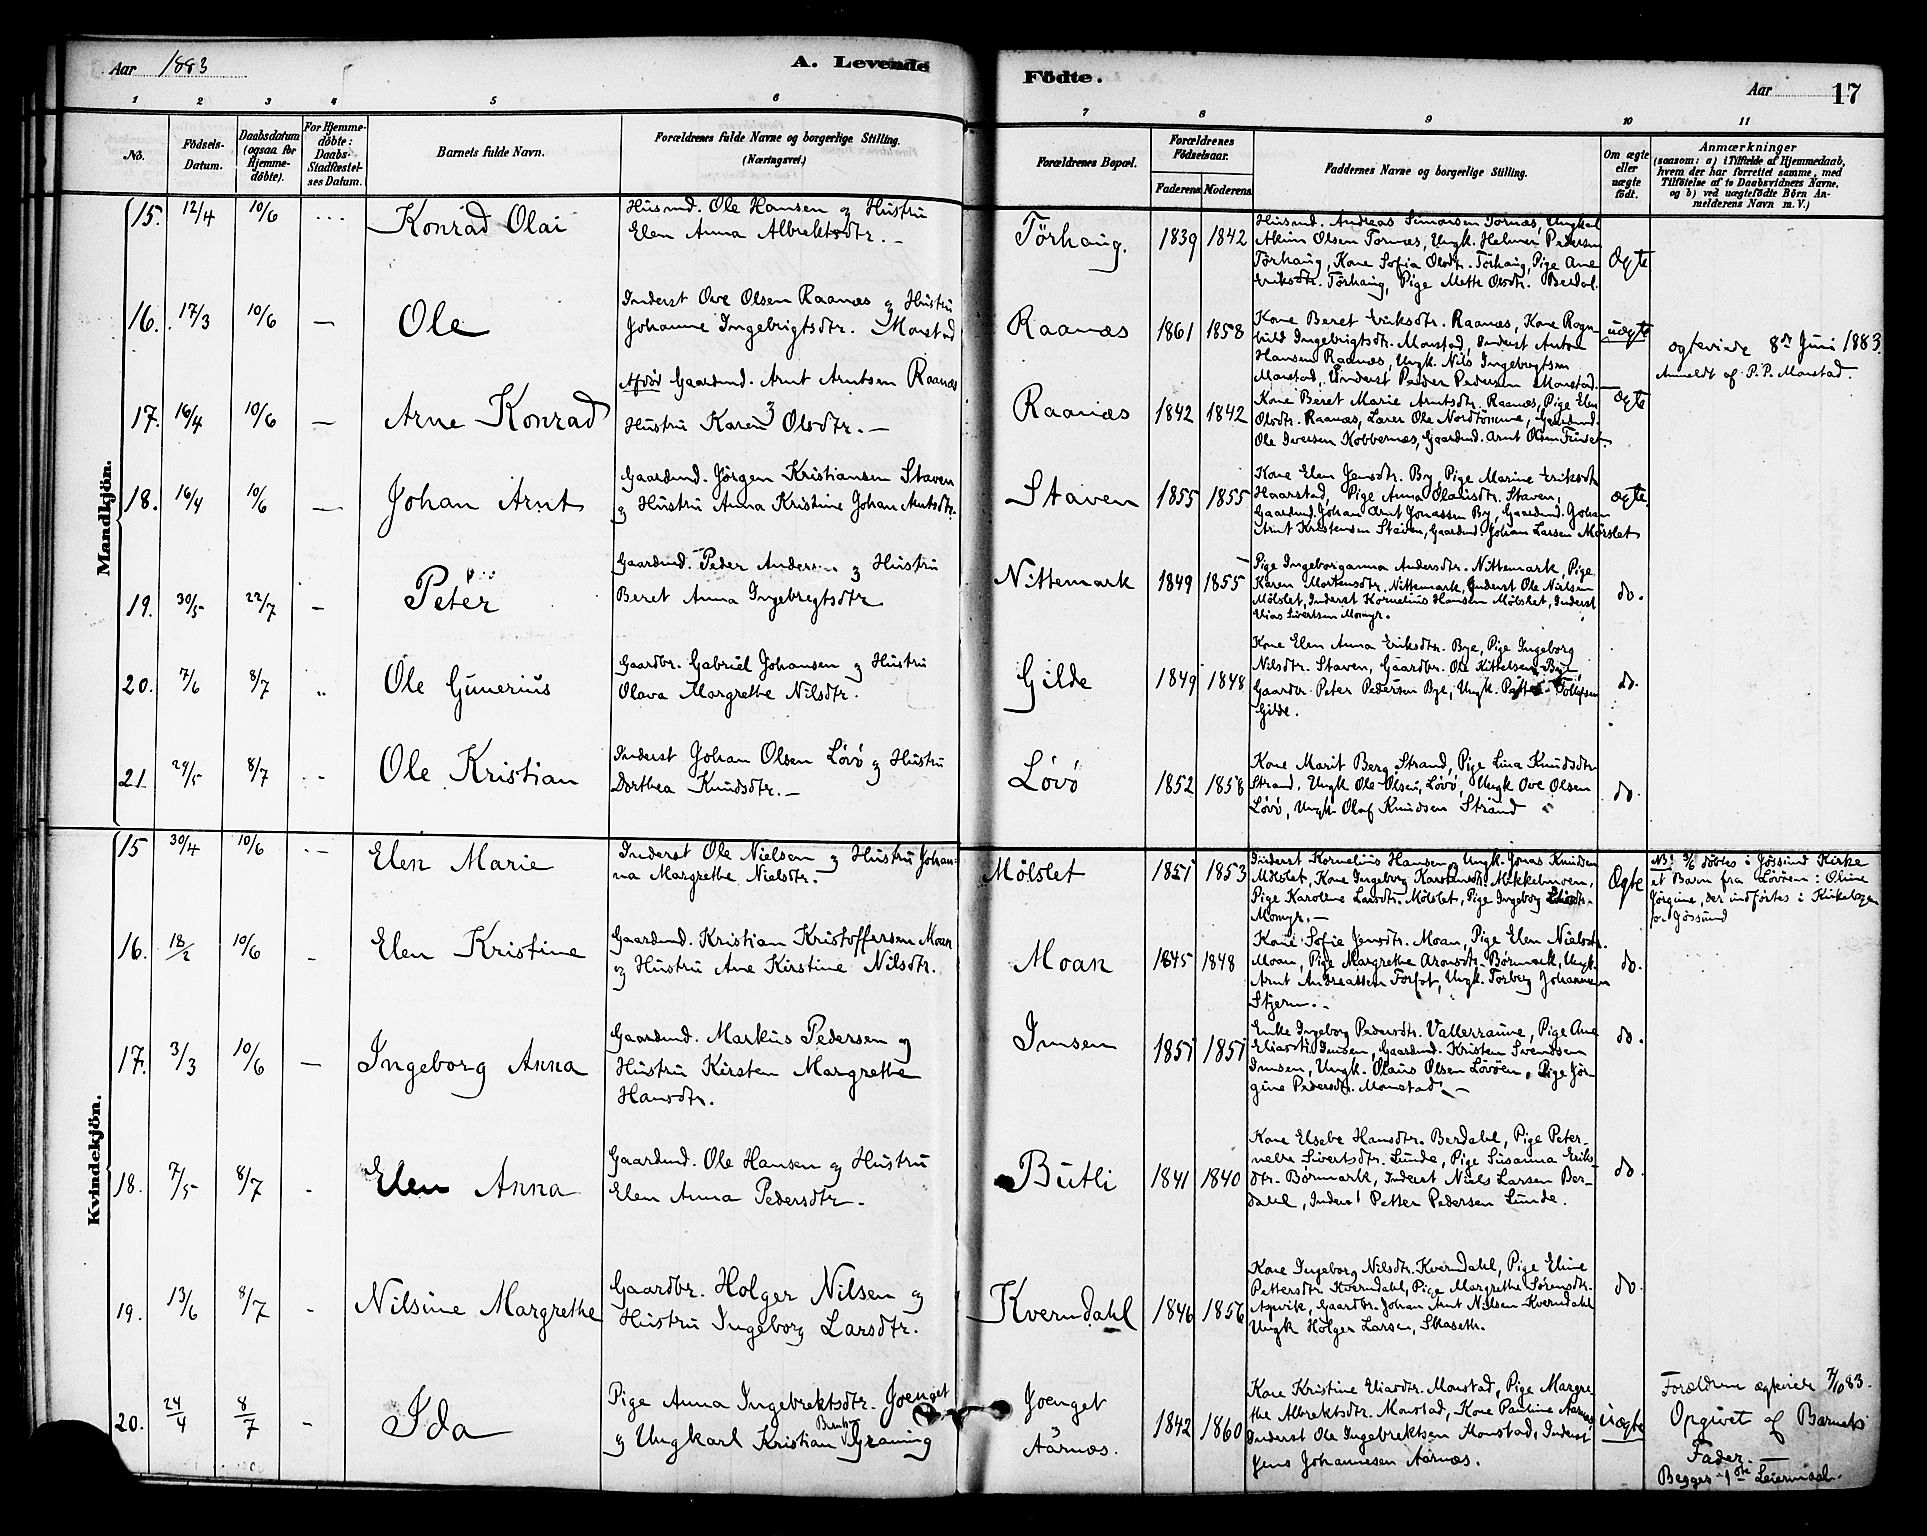 Aar 1883
A. Levende
Födte.
Aar
17
1 2 3 4 5 6 7 8 9 10 11
No.
Födsels-
Datum.
Daabsdatum
(ogsaa for
Hjemme-
døbte).
For Hjemme-
döbte:
Daabs-
Stadfæstel-
ses Datum.
Barnets fulde Navn.
Forældrenes fulde Navne og borgerlige Stilling.
(Næringsvei.)
Forældrenes Bopæl.
Forældrenes
Födselsaar.
Faderens. Moderens.
Faddernes Navne og borgerlige Stilling.
Om ægte
eller
uægte
födt.
Anmærkninger
(saasom: a) i Tilfælde af Hjemmedaab,
hvem der har forrettet samme, med
Tilföielse af to Daabsvidners Navne,
og b) ved uægtefödte Börn An-
melderens Navn m. V.)
Mandkjön.
15. 12/4 10/6
Konrad Olai
Husmd. Ole Hansen og Hustru
Elen Anna Albrektsdtr. –
Törhaug. 1839 1842
Husmd. Andreas Simonsen Tornæs, Ungkarl
Akim Olsen Tornæs, Ungk. Helmer Pedersen
Törhaug, Kone Sofia Olsdtr. Törhaug, Pige Ane
Eriksdtr. Törhaug, Pige Mette Olsdtr. Berdal.
Ægte
16. 17/3 10/6 –
Ole
Inderst Ove Olsen Raanæs og Hustru
Johanne Ingebrigtsdtr. Monstad
Raanæs 1861 1858
Kone Beret Eriksdtr. Raanæs, Kone Ragn-
hild Ingebrigtsdtr. Monstad, Inderst Anton
Hansen Raanæs, Ungk. Nils Ingebrigtsen
Monstad, Inderst Peder Pedersen Monstad. –
uægte
ægteviede 8de Juni 1883.
Anmeldt af P. P. Monstad.
17. 16/4 10/6 –
Arne Konrad
Afdød Gaardmd. Arnt Arntsen Raanæs
Hustru Karen Olsdtr. –
Raanæs 1842 1842
Kone Beret Marie Arntsdtr. Raanæs, Pige Elen
Olsdtr. Raanæs, Lærer Ole Nordtömme, Gaardmd.
Ole Iversen Kobbernæs, Gaardmd. Arnt Olsen
ægte
18. 16/4 10/6 –
Johan Arnt
Gaardmd. Jörgen Kristiansen Staven
og Hustru Anna Kristine Johan Arntsdtr.
Staven 1855 1855
Kone Elen Jensdtr. By, Pige Marine Eriksdtr.
Haarstad, Pige Anna Olausdtr. Staven,
Gaardmd. Johan Arnt Jonassen By, Gaardmd. Johan
Arnt Kristensen Staven, Gaardmd. Johan Larsen Mörslet
ægte
19. 30/5 22/7 –
Peter
Gaardmd. Peder Andersen og Hustru
Beret Anna Ingebregtsdtr
Nittemark 1849 1855
Pige Ingeboranna Andersdtr. Nittemark, Pige
Karen Mortensdtr. Nittemark, Inderst Ole Nielsen
Mölslet, Inderst Kornelius Hansen Mölslet, Inderst
Elias Sivertsen Momyr.
do.
20. 7/6 8/7 „
Ole Gunerius
Gaardbr. Gabriel Johansen og Hustru
Olava Margrethe Nilsdtr.
Gilde 1849 1848
Kone Elen Anna Eriksdtr. Bye, Pige Ingeborg
Nilsdtr. Staven, Gaardbr. Ole Kittelsen Bye,
Gaardbr Peter Pedersen Bye, Ungk. Petter Tollefsen
Gilde.
do.
21 24/5 8/7
Ole Kristian
Inderst Johan Olsen Lövö og Hustru
Dorthea Knudsdtr. –
Lövö 1852 1858
Kone Marit Berg Strand, Pige Lina Knudsdtr
Strand, Ungk Ole Olsen, Lövö, Ungk Ove Olsen
Lövö, Ungk. Olaf Knudsen Strand
do.
Kvindekjön.
15 30/4 10/6
Elen Marie
Inderst Ole Nielsen og Hustru Johan-
na Margrethe Nielsdtr.
Mölslet 1851 1853
Inderst Kornelius Hansen, Ungk. Jonas Knudsen
Mölslet, Kone Ingeborg Karstensdtr. Mikkelmoen,
Pige Karoline Larsdtr. Mölslet, Pige Ingeborg Eliasdtr.
Momyr. –
Ægte
NB! 3/6 döbtes i Jössund Kirke
et Barn fra Lövöen: Oline
Jörgine, der indförtes i Kirkebogen
for Jössund
16. 18/2 10/6
Elen Kristine
Gaardmd. Kristian Kristoffersen Moan
og Hustru Ane Kirstine Nilsdtr.
Moan 1845 1848
Kone Sofie Jensdtr. Moan, Pige Elen Nielsdtr.
Moan, Pige Margrethe Aronsdtr. Börmark, Ungk.
Arnt Andreassen Forfot, Ungk. Torberg Johannesen
Stjern. –
do.
17. 3/3 10/6 –
Ingeborg Anna
Gaardmd. Markus Pedersen og
Hustru Kirsten Margrethe
Hansdtr.
Imsen 1851 1851
Enke Ingeborg Pedersdtr. Vallersaune, Pige Ane
Eliasdtr. Imsen, Gaardmd. Kristen Svendsen
Imsen, Ungk. Olaus Olsen Lövöen, Pige Jör-
gine Pedersdtr. Monstad. –
do.
18. 7/5 8/7
Elen Anna
Gaardmd. Ole Hansen og Hustru
Elen Anna Pedersdtr.
Butli 1841 1840
Kone Elsebe Hansdtr. Berdahl, Pige Peter-
nelle Sivertsdtr. Lunde, Pige Susanna Eriks-
dtr. Börmark, Inderst Niels Larsen Ber-
dahl, Inderst Petter Pedersen Lunde.
do.
19. 13/6 8/7
Nilsine Margrethe
Gaardbr. Holger Nilsen og
Hustru Ingeborg Larsdtr.
Kverndahl 1846 1856
Kone Ingeborg Nilsdtr. Kverndahl, Pige Eline
Pettersdtr Kverndahl, Pige Margrethe Sörensdtr.
Aspvik, Gaardbr. Johan Arnt Nilsen Kverndahl
Ungk Holger Larsen, Skaseth.
do.
20. 24/4 8/7 –
Ida
Pige Anna Ingebrektsdtr. Joenget
og Ungkarl Kristian Graning
Joenget
Aarnæs. 1842 1860
Kone Kristine Eliasdtr. Monstad, Pige Margre-
the Albrektsdtr. Monstad, Kone Pauline Aarnæs,
Inderst Ole Ingebrektsen Monstad, Inderst
Jens Johannesen Aarnæs.
uægte
Forældrene ægteviede 7/10 83.
Opgivet af Barnets
Fader.
Begges 1ste Leiermaal.